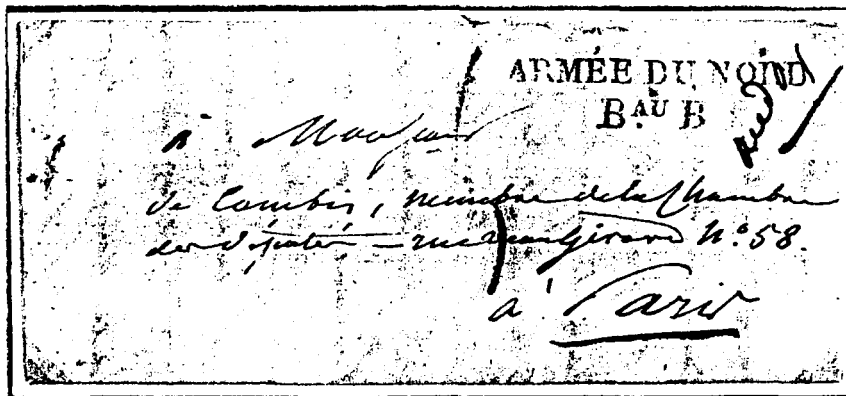 ARMÉE DU NORD
BAU B
A Monsieur
de Combis, membre de la Chambre
des députés - rue Girard N.° 58.
à Paris